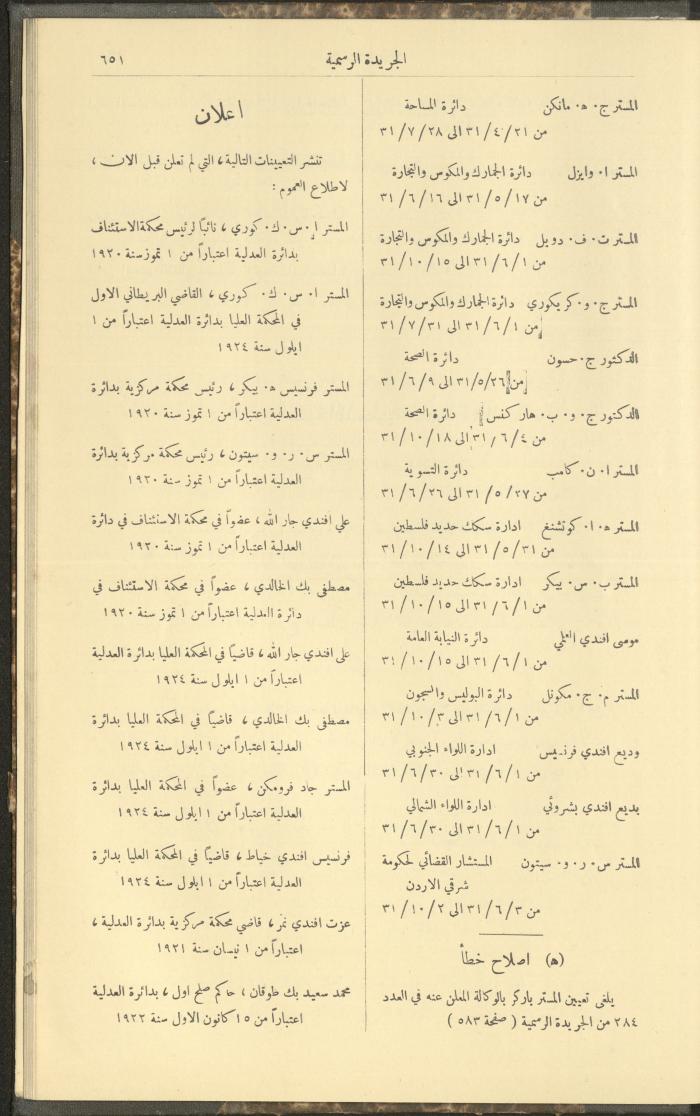 الجريدة الرسمية
٦٥١
المستر ج٠ ه٠ مانكن دائرة المساحة
من ٣١/٤/٢١ الى ٣١/٧/٢٨
المستر ا٠ وايزل دائرة الجمارك والمكوس والتجارة
من ٣١/٥/١٧ الى ٣١/٦/١٦
المستر ت٠ ف٠ دويل دائرة الجمارك والمكوس والتجارة
من ٣١/٦/١ الى ٣١/١٠/١٥
المستر ج٠ و٠ كريكوري دائرة الجمارك والمكوس والتجارة
من ٣١/٦/١ الى ٣١/٧/٣١
الدكتور ج٠ حسون دائرة الصحة
من ٣١/٥/٢٦ الى ٣١/٦/٩
الدكتور ج٠ و٠ ب٠ هاركنس دائرة الصحة
من ٣١/٦/٤ الى ٣١/١٠/١٨
المستر ا٠ ن٠ كامب دائرة التسوية
من ٣١/٥/٢٧ الى ٣١/٦/٢٦
المستر ه٠ ا٠ كوتشنغ ادارة سكك حديد فلسطين
من ٣١/٥/٣١ الى ٣١/١٠/١٤
المستر ب٠ س٠ بيكر ادارة سكك حديد فلسطين
من ٣١/٦/١ الى ٣١/١٠/١٥
موسى افندي العلمي دائرة النيابة العامة
من ٣١/٦/١ الى ٣١/١٠/١٥
المستر م٠ ج٠ مكونل دائرة البوليس والسجون
من ٣١/٦/١ الى ٣١/١٠/٣
وديع افندي فرنسيس ادارة اللواء الجنوبي
من ٣١/٦/١ الى ٣١/٦/٣٠
بديع افندي بشروئي ادارة اللواء الشمالي
من ٣١/٦/١ الى ٣١/٦/٣٠
المستر س٠ ر٠ و٠ سيتون المستشار القضائي لحكومة
شرقي الاردن
من ٣١/٦/٣ الى ٣١/١٠/٢
(ه) اصلاح خطأ
يلغى تعيين المستر باركر بالوكالة المعلن عنه في العدد
٢٨٤ من الجريدة الرسمية ( صفحة ٥٨٣ )
اعلان
تنشر التعيينات التالية، التي لم تعلن قبل الان،
لاطلاع العموم :
المستر ا٠ س٠ ك٠ كوري، نائبًا لرئيس محكمة الاستئناف
بدائرة العدلية اعتباراً من ١ تموز سنة ١٩٢٠
المستر ا٠ س٠ ك٠ كوري، القاضي البريطاني الاول
في المحكمة العليا بدائرة العدلية اعتباراً من ١
ايلول سنة ١٩٢٤
المستر فرنسيس ه٠ بيكر، رئيس محكمة مركزية بدائرة
العدلية اعتباراً من ١ تموز سنة ١٩٢٠
المستر س٠ ر٠ و٠ سيتون، رئيس محكمة مركزية بدائرة
العدلية اعتباراً من ١ تموز سنة ١٩٢٠
علي افندي جار الله، عضواً في محكمة الاستئناف في دائرة
العدلية اعتباراً من ١ تموز سنة ١٩٢٠
مصطفى بك الخالدي، عضواً في محكمة الاستئناف في
دائرة العدلية اعتباراً من ١ تموز سنة ١٩٢٠
على افندي جار الله، قاضيًا في المحكمة العليا بدائرة العدلية
اعتباراً من ١ ايلول سنة ١٩٢٤
مصطفى بك الخالدي، قاضيًا في المحكمة العليا بدائرة
العدلية اعتباراً من ١ ايلول سنة ١٩٢٤
المستر جاد فرومكن، عضواً في المحكمة العليا بدائرة
العدلية اعتباراً من ١ ايلول سنة ١٩٢٤
فرنسيس افندي خياط، قاضيًا في المحكمة العليا بدائرة
العدلية اعتباراً من ١ ايلول سنة ١٩٢٤
عزت افندي نمر، قاضي محكمة مركزية بدائرة العدلية،
اعتباراً من ١ نيسان سنة ١٩٢١
محمد سعيد بك طوقان، حاكم صلح اول، بدائرة العدلية
اعتباراً من ١٥ كانون الاول سنة ١٩٢٢